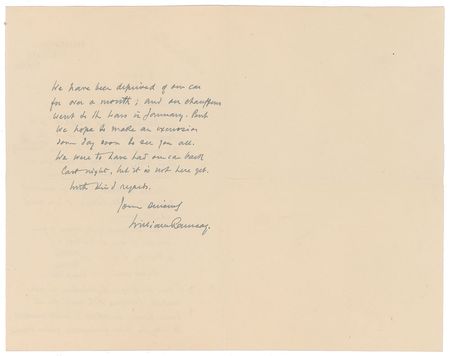 We have been deprived of our car
for over a month; and our chauffeur
went to the wars in January. But
we hope to make an excursion
some day soon to see you all.
We were to have had our car back
last night, but it is not here yet.
With kind regards.
Yours sincerely
William Ramsay.